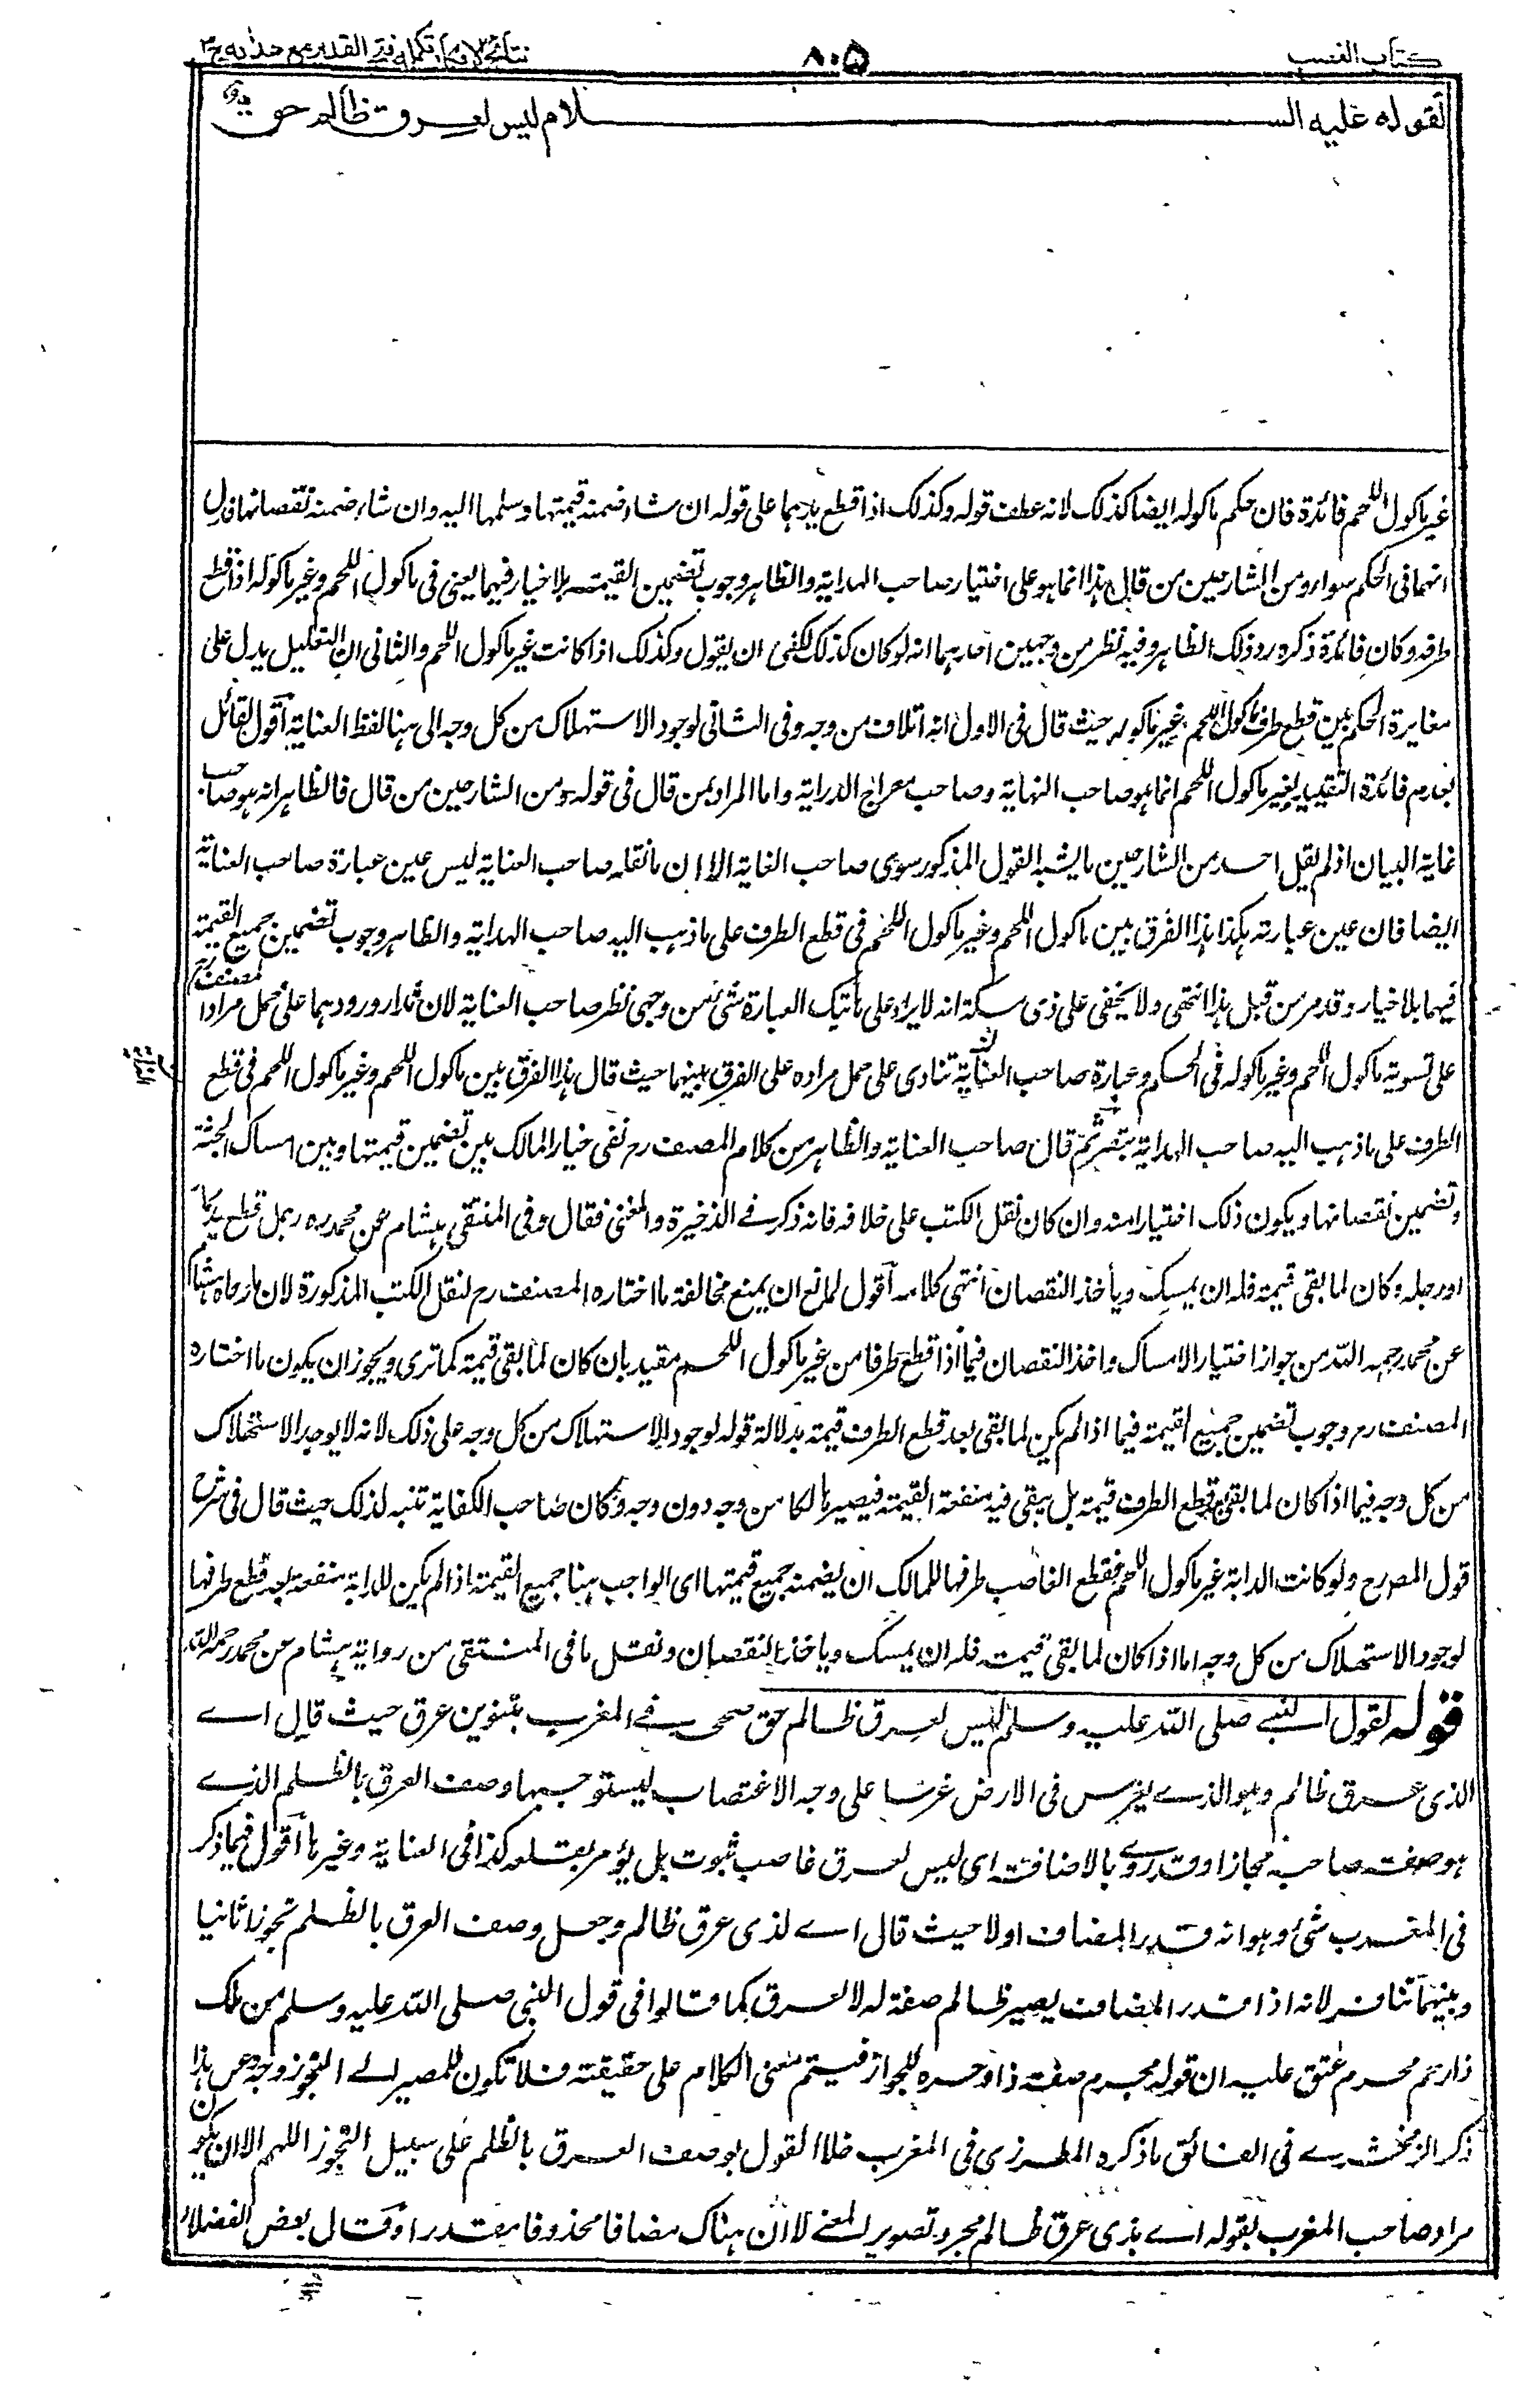 كتاب الغصب
٨٠٥
نتائج الافكار تكملة فتح القدير مع هداية ج ٣
لقوله عليه السلام ليس لعرق ظالم حق
غير ماكول اللحم فائدة فان حكم ماكوله ايضا كذلك لانه عطف قوله وكذلك اذا قطع يدهما على قوله ان شاء ضمنه قيمتها وسلمها اليه وان شاء ضمنه نقصانها فدل
انهما فى الحكم سواء ومن الشارحين من قال هذا انما هو على اختيار صاحب الهداية والظاهر وجوب تضمين القيمة بلا خيار فيهما يعنى فى ماكول اللحم وغير ماكوله اذا قطع
طرفه وكان فائدة ذكره رد ذلك الظاهر وفيه نظر من وجهين احدهما انه لو كان كذلك لكفى ان يقول وكذلك اذا كانت غير ماكول اللحم والثانى ان التعليل يدل على
مغايرة الحكم بين قطع طرف ماكول اللحم وغير ماكوله حيث قال فى الاول انه اتلاف من وجه وفى الثانى لوجود الاستهلاك من كل وجه الى هنا لفظ العناية اقول القائل
بعدم فائدة التقييد بغير ماكول اللحم انما هو صاحب النهاية وصاحب معراج الدراية واما المراد بمن قال فى قوله ومن الشارحين من قال فالظاهر انه هو صاحب
غاية البيان اذ لم يقل احد من الشارحين ما يشبه القول المذكور سوى صاحب الغاية الا ان ما نقله صاحب العناية ليس عين عبارة صاحب الغاية
ايضا فان عين عبارته هكذا هذا الفرق بين ماكول اللحم وغير ماكول اللحم فى قطع الطرف على ما ذهب اليه صاحب الهداية والظاهر وجوب تضمين جميع القيمة
فيهما بلا خيار وقد مر من قبل هذا انتهى ولا يخفى على ذى مسكة انه لا يرد على هاتيك العبارة شئ من وجهى نظر صاحب العناية لان مدار ورودهما على حمل مراد المصنف رح
على تسوية ماكول اللحم وغير ماكوله فى الحكم وعبارة صاحب الغاية تنادى على حمل مراده على الفرق بينهما حيث قال هذا الفرق بين ماكول اللحم وغير ماكول اللحم فى قطع
الطرف على ما ذهب اليه صاحب الهداية تبصر ثم قال صاحب العناية والظاهر من كلام المصنف رح نفى خيار المالك بين تضمين قيمتها وبين امساك الجثة
وتضمين نقصانها ويكون ذلك اختيارا منه وان كان نقل الكتب على خلافه فانه ذكر فى الذخيرة والمغنى فقال وفى المنتقى هشام عن محمد ره رجل قطع يد حمار
او رجله وكان لما بقى قيمة فله ان يمسك ويأخذ النقصان انتهى كلامه اقول لمانع ان يمنع مخالفة ما اختاره المصنف رح لنقل الكتب المذكورة لان ما رواه هشام
عن محمد رحمه الله من جواز اختيار الامساك واخذ النقصان فيما اذا قطع طرفا من غير ماكول اللحم مقيد بان كان لما بقى قيمة كما ترى ويجوز ان يكون ما اختاره
المصنف رح وجوب تضمين جميع القيمة فيما اذا لم يكن لما بقى بعد قطع الطرف قيمة بدلالة قوله لوجود الاستهلاك من كل وجه على ذلك لانه لا يوجد الاستهلاك
من كل وجه فيما اذا كان لما بقى بعد قطع الطرف قيمة بل يبقى فيه منفعة القيمة فيصير هالكا من وجه دون وجه وكان صاحب الكفاية تنبه لذلك حيث قال فى شرح
قول المص رح ولو كانت الدابة غير ماكول اللحم فقطع الغاصب طرفها للمالك ان يضمنه جميع قيمتها اى الواجب هنا جميع القيمة اذا لم يكن للدابة منفعة بعد قطع طرفها
لوجود الاستهلاك من كل وجه اما اذا كان لما بقى قيمة فله ان يمسك وياخذ النقصان ونقل ما فى المنتقى من رواية هشام عن محمد رحمه الله
قوله لقول النبى صلى الله عليه وسلم ليس لعرق ظالم حق صحح فى المغرب بتنوين عرق حيث قال اى
الذى عرق ظالم وهو الذى يغرس فى الارض غرسا على وجه الاغتصاب ليستوجبها وصف العرق بالظلم الذى
هو صفة صاحبه مجازا وقد روى بالاضافة اى ليس لعرق غاصب ثبوت بل يؤمر بقلعه كذا فى العناية وغيرها اقول فيما ذكر
فى المغرب شئ وهو انه قدر المضاف اولا حيث قال اى لذى عرق ظالم وجعل وصف العرق بالظلم تجوزا ثانيا
وبينهما تناف لانه اذا قدر المضاف يصير ظالم صفة له لا لعرق كما قالوا فى قول النبى صلى الله عليه وسلم من ملك
ذا رحم محرم عتق عليه ان قوله محرم صفة ذا وجره للجوار فيتم معنى الكلام على حقيقته فلا تكون للمصير الى التجوز وجه وعن هذا
ذكر الزمخشرى فى الفائق ما ذكره المطرزى فى المغرب خلا القول بوصف العرق بالظلم على سبيل التجوز اللهم الا ان يكون
مراد صاحب المغرب بقوله اى لذى عرق ظالم مجرد تصوير المعنى لا ان هناك مضافا محذوفا مقدرا وقال بعض الفضلاء